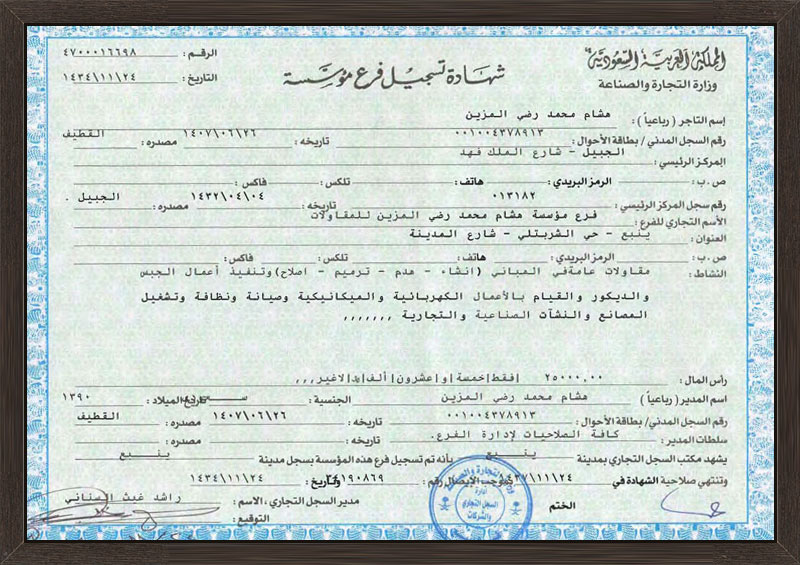 المملكة العربية السعودية
وزارة التجارة والصناعة
شهادة تسجيل فرع مؤسسة
الرقم : ٤٧٠٠٠١٦٦٩٨
التاريخ : ١٤٣٤/١١/٢٤
إسم التاجر ( رباعياً ) : هشام محمد رضي المزين
رقم السجل المدني/ بطاقة الأحوال : ٠٠١٠٠٤٣٧٨٩١٣ تاريخه : ١٤٠٧/٠٦/٢٦ مصدره : القطيف
المركز الرئيسي : الجبيل - شارع الملك فهد
ص . ب : الرمز البريدي : هاتف : تلكس : فاكس :
رقم سجل المركز الرئيسي : ٠١٣١٨٢ تاريخه : ١٤٣٢/٠٤/٠٤ مصدره : الجبيل .
الأسم التجاري للفرع : فرع مؤسسة هشام محمد رضي المزين للمقاولات
العنوان : ينبع - حي الشربتلي - شارع المدينة
ص . ب : الرمز البريدي : هاتف : تلكس : فاكس :
النشاط : مقاولات عامة في المباني (انشاء - هدم - ترميم - اصلاح) وتنفيذ أعمال الجبس
والديكور والقيام بالأعمال الكهربائية والميكانيكية وصيانة ونظافة وتشغيل
المصانع والنشآت الصناعية والتجارية ,,,,,,,
رأس المال : ٢٥٠٠٠,٠٠ |فقط|خمسة|و|عشرون|ألف|ريال|لاغير,,,
اسم المدير ( رباعياً ) : هشام محمد رضي المزين الجنسية : سعودي تاريخ الميلاد : ١٣٩٠
رقم السجل المدني/ بطاقة الأحوال : ٠٠١٠٠٤٣٧٨٩١٣ تاريخه : ١٤٠٧/٠٦/٢٦ مصدره : القطيف
سلطات المدير : كافة الصلاحيات لإدارة الفرع. تاريخه : مصدره :
يشهد مكتب السجل التجاري بمدينة ينبع بأنه تم تسجيل فرع هذه المؤسسة بسجل مدينة ينبع
وتنتهي صلاحية الشهادة في ٣٧/١١/٢٤ وبموجب الايصال رقم : ١٩٠٨٦٩ وتاريخ : ١٤٣٤/١١/٢٤
الختم
مدير السجل التجاري : الاسم : راشد غيث
التوقيع :
وزارة التجارة والصناعة
ادارة
السجل التجاري
والشركات